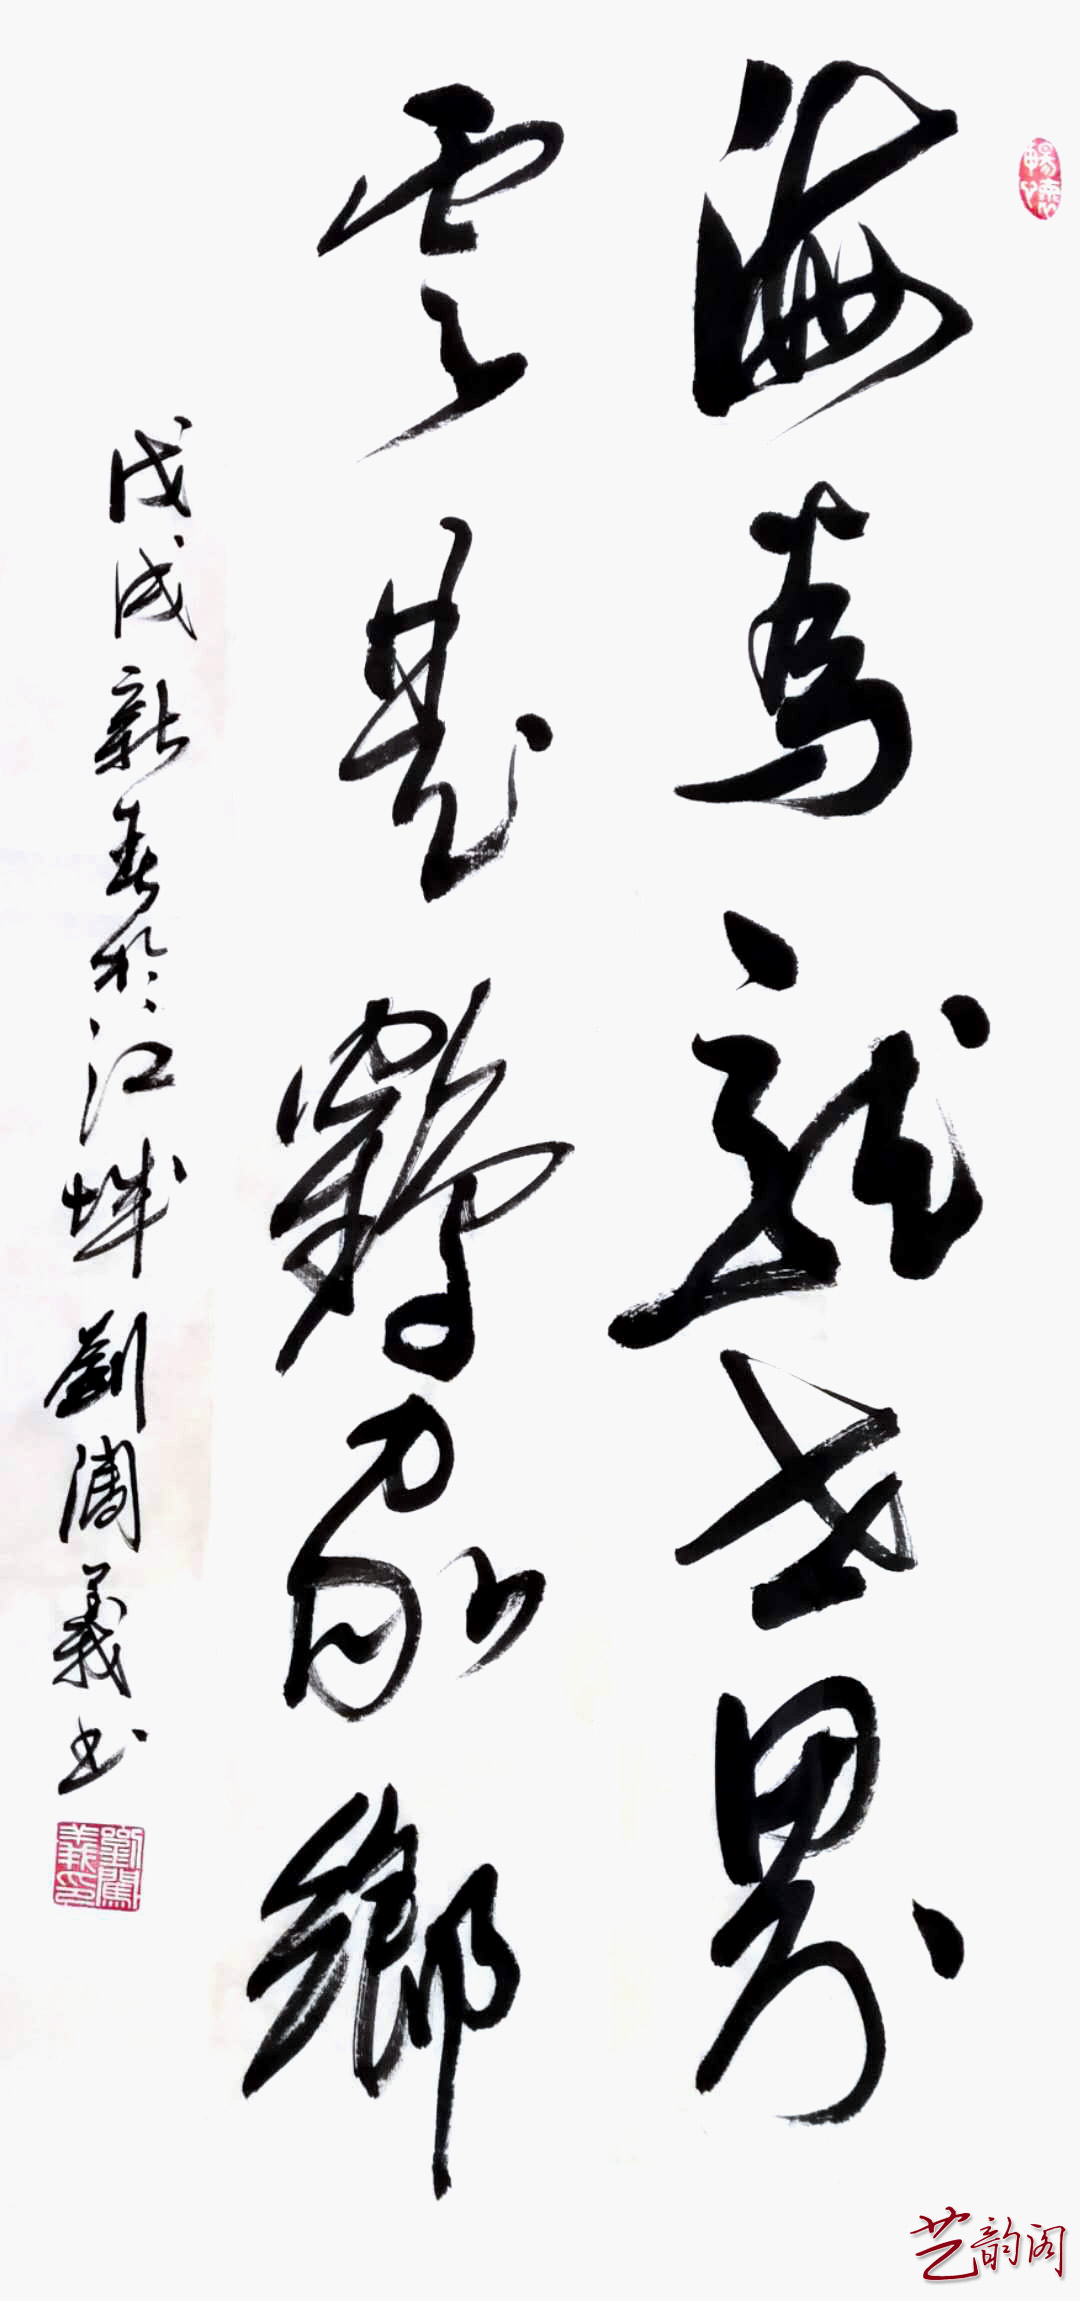 暢懷
海為龍世界
雲是鶴家鄉
戊戌新春於江城劉濶義書
劉闊義印
艺韵阁